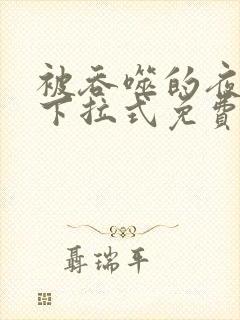 被吞噬的夜
下拉式免費
聶瑞平